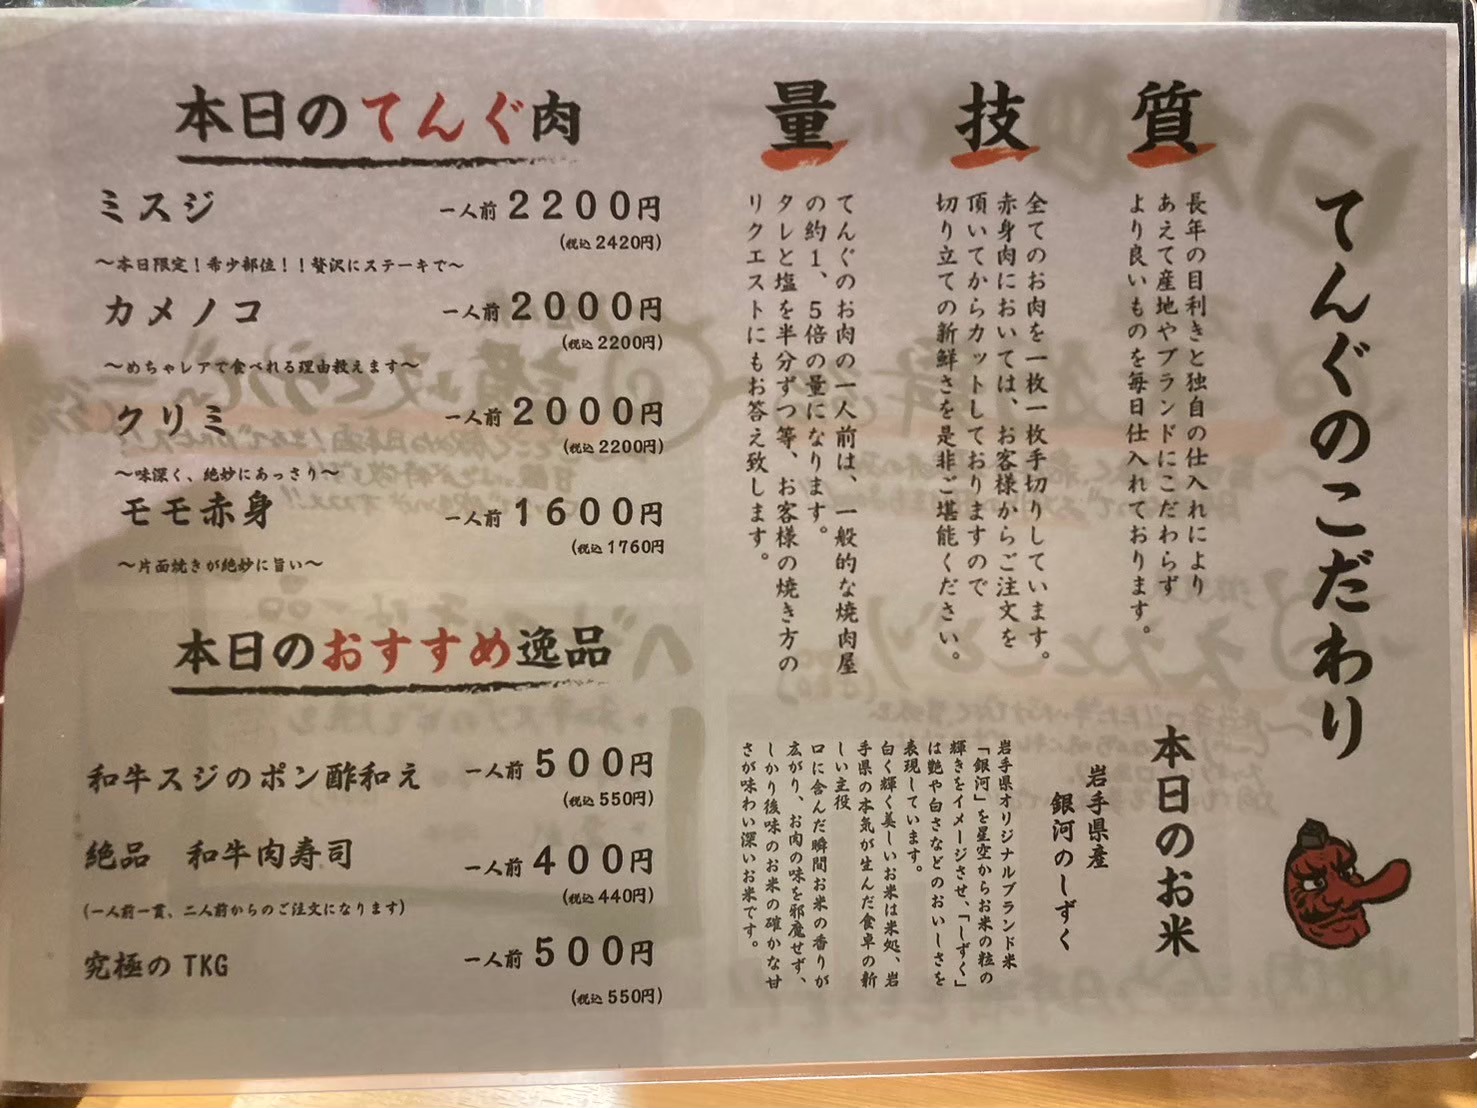 てんぐのこだわり
質
長年の目利きと独自の仕入れにより
あえて産地やブランドにこだわらず
より良いものを毎日仕入れております。
技
全てのお肉を一枚一枚手切りしています。
赤身肉においては、お客様からご注文を
頂いてからカットしておりますので
切り立ての新鮮さを是非ご堪能ください。
量
てんぐのお肉の一人前は、一般的な焼肉屋
の約1、5倍の量になります。
タレと塩を半分ずつ等、お客様の焼き方の
リクエストにもお答え致します。
本日のお米
岩手県産
銀河のしずく
岩手県オリジナルブランド米
「銀河」を星空からお米の粒の
輝きをイメージさせ、「しずく」
は艶や白さなどのおいしさを
表現しています。
白く輝く美しいお米は米処、岩
手県の本気が生んだ食卓の新
しい主役
口に含んだ瞬間お米の香りが
広がり、お肉の味を邪魔せず、
しかり後味のお米の確かな甘
さが味わい深いお米です。
本日のてんぐ肉
ミスジ 一人前2200円
(税込2420円)
～本日限定！希少部位！！贅沢にステーキで～
カメノコ 一人前2000円
(税込2200円)
～めちゃレアで食べれる理由教えます～
クリミ 一人前2000円
(税込2200円)
～味深く、絶妙にあっさり～
モモ赤身 一人前1600円
(税込1760円
～片面焼きが絶妙に旨い～
本日のおすすめ逸品
和牛スジのポン酢和え 一人前500円
(税込550円)
絶品 和牛肉寿司 一人前400円
(税込440円)
(一人前一貫、二人前からのご注文になります)
究極のTKG 一人前500円
(税込550円)